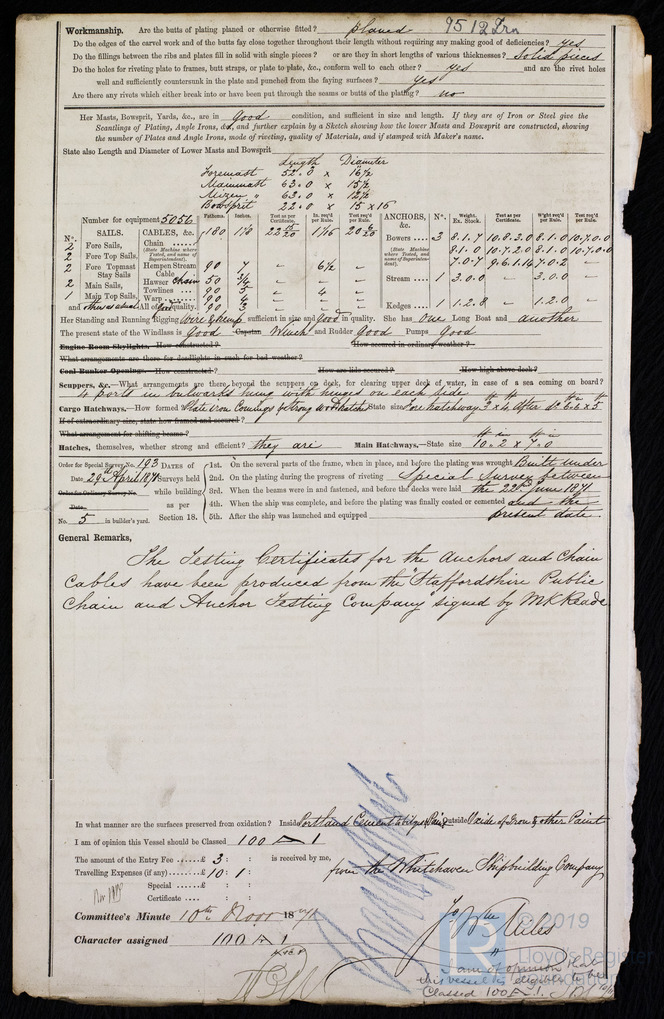 Workmanship. Are the butts of plating planed or otherwise fitted? planed 9512 Irn
Do the edges of the carvel work and of the butts fay close together throughout their length without requiring any making good of deficiencies? yes
Do the fillings between the ribs and plates fill in solid with single pieces? or are they in short lengths of various thicknesses? Solid pieces
Do the holes for riveting plate to frames, butt straps, or plate to plate, &c., conform well to each other? yes and are the rivet holes
well and sufficiently countersunk in the plate and punched from the faying surfaces? yes
Are there any rivets which either break into or have been put through the seams or butts of the plating? no
Her Masts, Bowsprit, Yards, &c., are in good condition, and sufficient in size and length. If they are of Iron or Steel give the
Scantlings of Plating, Angle Irons, &c., and further explain by a Sketch showing how the lower Masts and Bowsprit are constructed, showing
the number of Plates and Angle Irons, mode of riveting, quality of Materials, and if stamped with Maker's name.
State also Length and Diameter of Lower Masts and Bowsprit
Length Diameter
Foremast 52.0 x 16½
Mainmast 63.0 x 15½
Mizen " 63.0 x 12½
Bowsprit 22.0 x 15 x 16
Number for equipment 5056
Fathoms. Inches. Test as per Certificate. In. req'd per Rule. Test req'd per Rule.
ANCHORS, &c. Nº. Weight. Ex. Stock. Test as per Certificate. W'ght req'd per Rule. Test req'd per Rule.
Nº. SAILS. CABLES, &c.
2 Fore Sails, Chain 180
(State Machine where Tested, and name of Superintendent).
Bowers 3 8.1.7 10.8.3.0 8.1.0 10.7.0.0
2 Fore Top Sails, 8.1.0 10.7.2.0 8.1.0 10.7.0.0
2 Fore Topmast Stay Sails Hempen Stream Cable 90 7 " 6½ "
7.0.7 9.6.1.14 7.0.2 "
2 Main Sails, Hawser Chain 50 ¾ "
Towlines 90 5 " 4 "
Stream 1 3.0.0 3.0.0 "
1 Main Top Sails, Warp 90 4
and others as usual All of good quality. 90 3 "
Kedges 1 1.2.8 " 1.2.0 "
Her Standing and Running Rigging Wire & hemp sufficient in size and good in quality. She has One Long Boat and another
The present state of the Windlass is Good Capstan Winch and Rudder Good Pumps Good
Engine Room Skylights. How constructed? How secured in ordinary weather?
What arrangements are there for deadlights in such for bad weather?
Coal Bunker Openings. How constructed? How are lids secured? How high above deck?
Scuppers, &c.—What arrangements are there beyond the scuppers on deck, for clearing upper deck of water, in case of a sea coming on board?
4 ports in bulwarks hung with hinges on each side
Cargo Hatchways.—How formed Plate iron Comings & strong wood hatches State size Fore hatchway 3 x 4 After dº 6.6 x 5
If of extraordinary size, state how framed and secured?
What arrangement for shifting beams?
Hatches, themselves, whether strong and efficient? they are Main Hatchways.—State size 10.2 x 7.0
Order for Special Survey No. 193
Date 29th April 1874
Order for Ordinary Survey No.
Date
No. 5 in builder's yard.
DATES of Surveys held while building as per Section 18.
1st. On the several parts of the frame, when in place, and before the plating was wrought Built under
2nd. On the plating during the progress of riveting Special Survey between
3rd. When the beams were in and fastened, and before the decks were laid the 22nd June 1874
4th. When the ship was complete, and before the plating was finally coated or cemented and the
5th. After the ship was launched and equipped present date.
General Remarks,
The Testing Certificates for the Anchors and Chain
Cables have been produced from the "Staffordshire Public
Chain and Anchor Testing Company" signed by
In what manner are the surfaces preserved from oxidation? Inside Portland Cement to bilges & Paint Outside Oxide of Iron & other Paint
I am of opinion this Vessel should be Classed 100 A 1
The amount of the Entry Fee £ 3 : : is received by me,
from the Whitehaven Shipbuilding Company
Travelling Expenses (if any) £ 10 : 1 :
Special :
Certificate :
Committee's Minute 10th Novr 1874
Character assigned 100 A 1
I am of opinion that
this vessel is eligible to be
Classed 100 A.1.
© 2019
Lloyd's Register